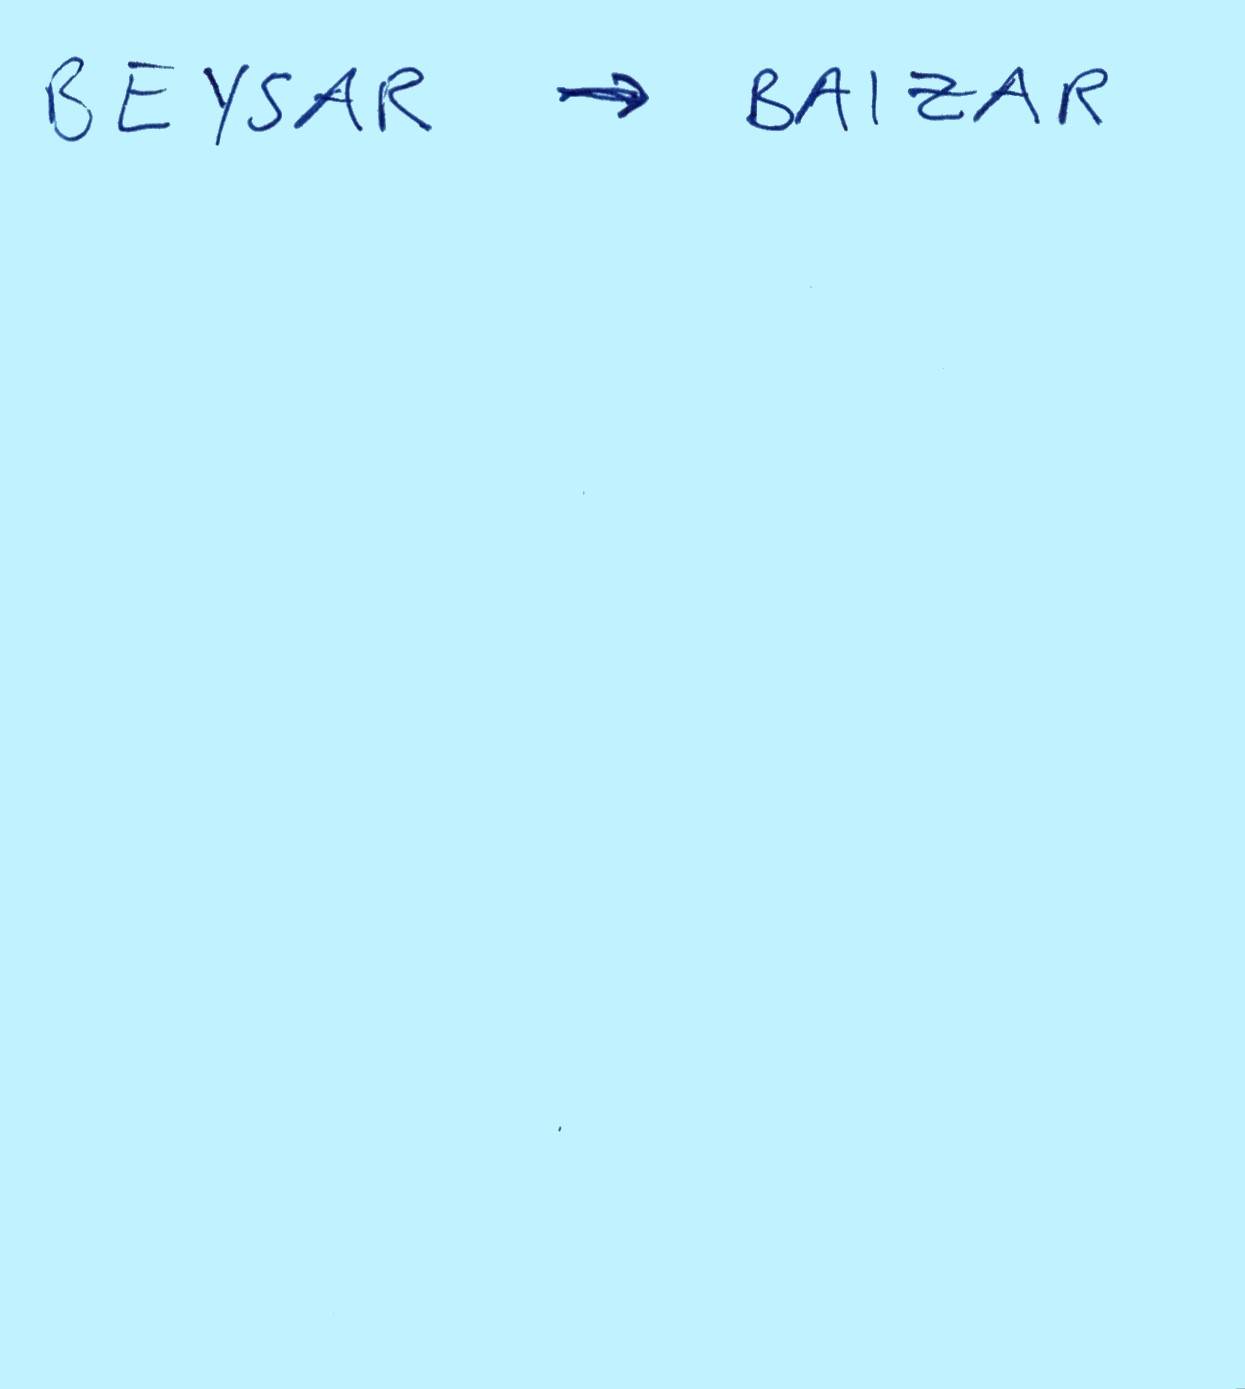 BEYSAR → BAIZAR